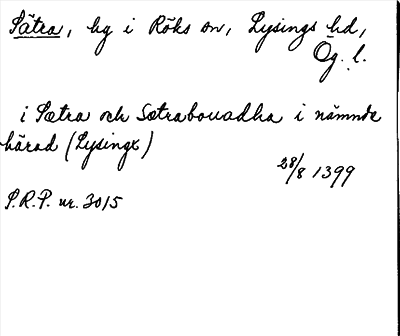 Sätra, hg i Röks sn, Lysings hd,
Ög. l.
i Sætra och Sætrabouadha i nämnde
härad (Lysingx)
28/8 1399
S.R.P. nr. 3015